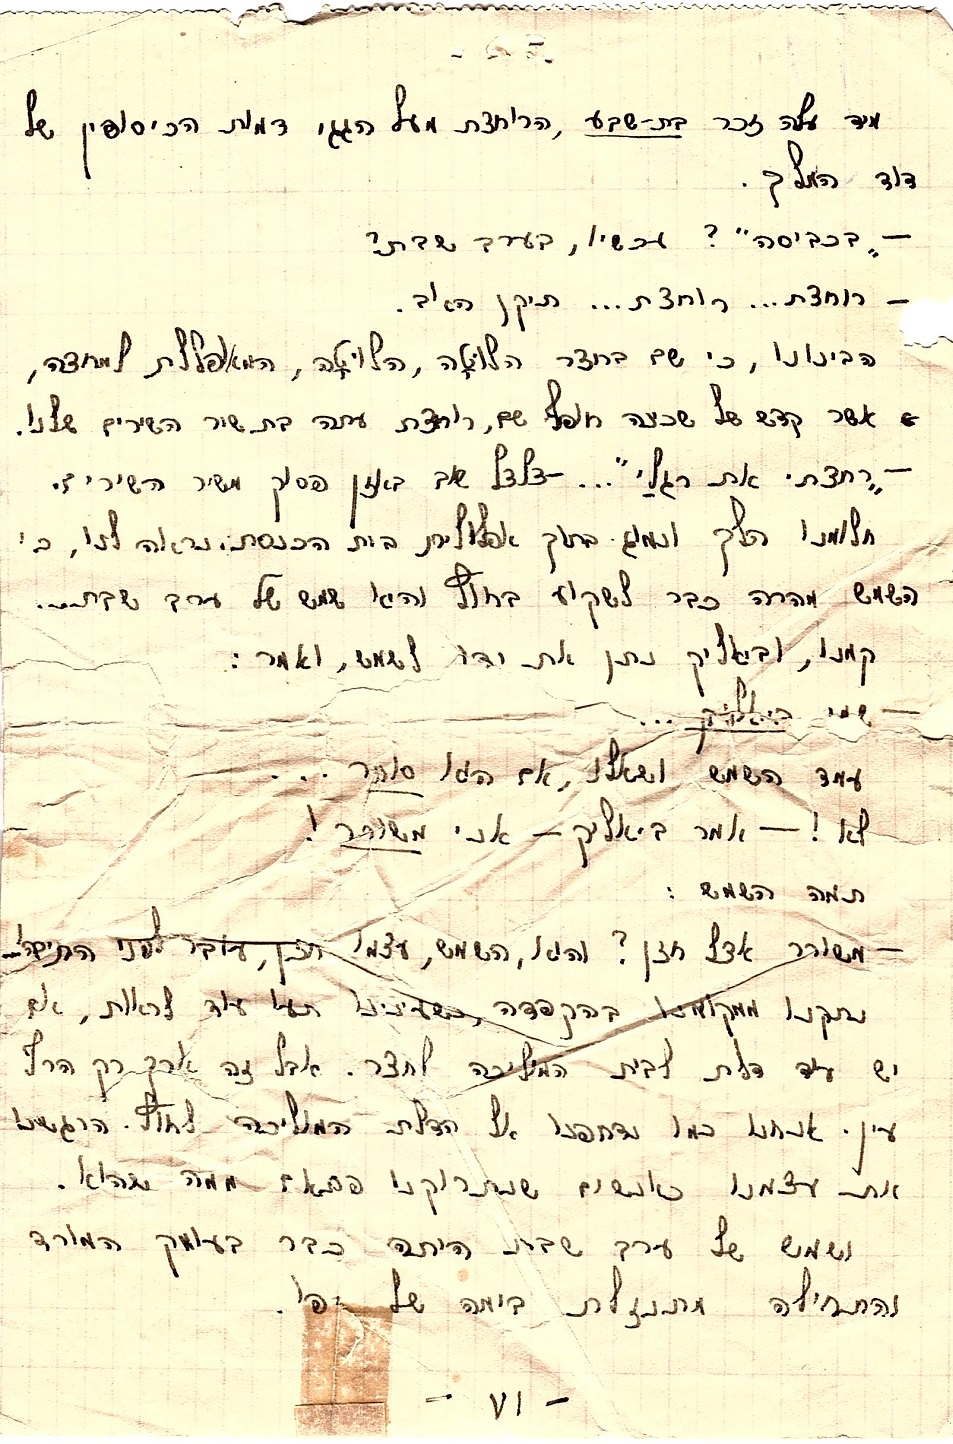 מיד עלה זכר בת-שבע, הרוחצת מעל הגג, דמות הכיסופין של
דוד המלך.
— "בכביסה"? עכשיו, בערב שבת?
— רוחצת... רוחצת... תיקן האב.
הבינונו, כי שם בחצר הלויטה, הלויטה, המאופללת למחצה,
אשר קדש של שכינה חופף שם, רוחצת עתה בת שיר השירים שלנו.
— "רחצתי את רגלַי"... — צלצל שוב באזן פסוק משיר השירים.
חלומנו הלך ונמוג בתוך אפלולית בית הכנסת. נראה לנו, כי
השמש מהרה כבר לשקוע בחוץ והיא שמש של ערב שבת...
קמנו, וביאליק נתן את ידו לשמש, ואמר:
— שמי ביאליק...
עמד השמש ושאלו, אם הוא סוחר...
לא! — אמר ביאליק — אני משורר!
תמה השמש:
— משורר אצל חזן? והוא, השמש, עצמו חזן, עובר לפני התיבה!...
נתקנו ממקומנו בהקפדה, כשעינינו תעו עוד לראות, אם
יש עוד דלת לבית המוליכה לחצר. אבל זה ארך רק הרף
עין. אנחנו כמו נדחפנו אל הדלת המוליכה לחוץ. הרגשנו
את עצמנו כאנשים שנתרוקנו פתאם ממה שהוא.
ושמש של ערב שבת היתה כבר בעומק המורד
והתחילה מתנזלת בימה של יפו.
— VI —